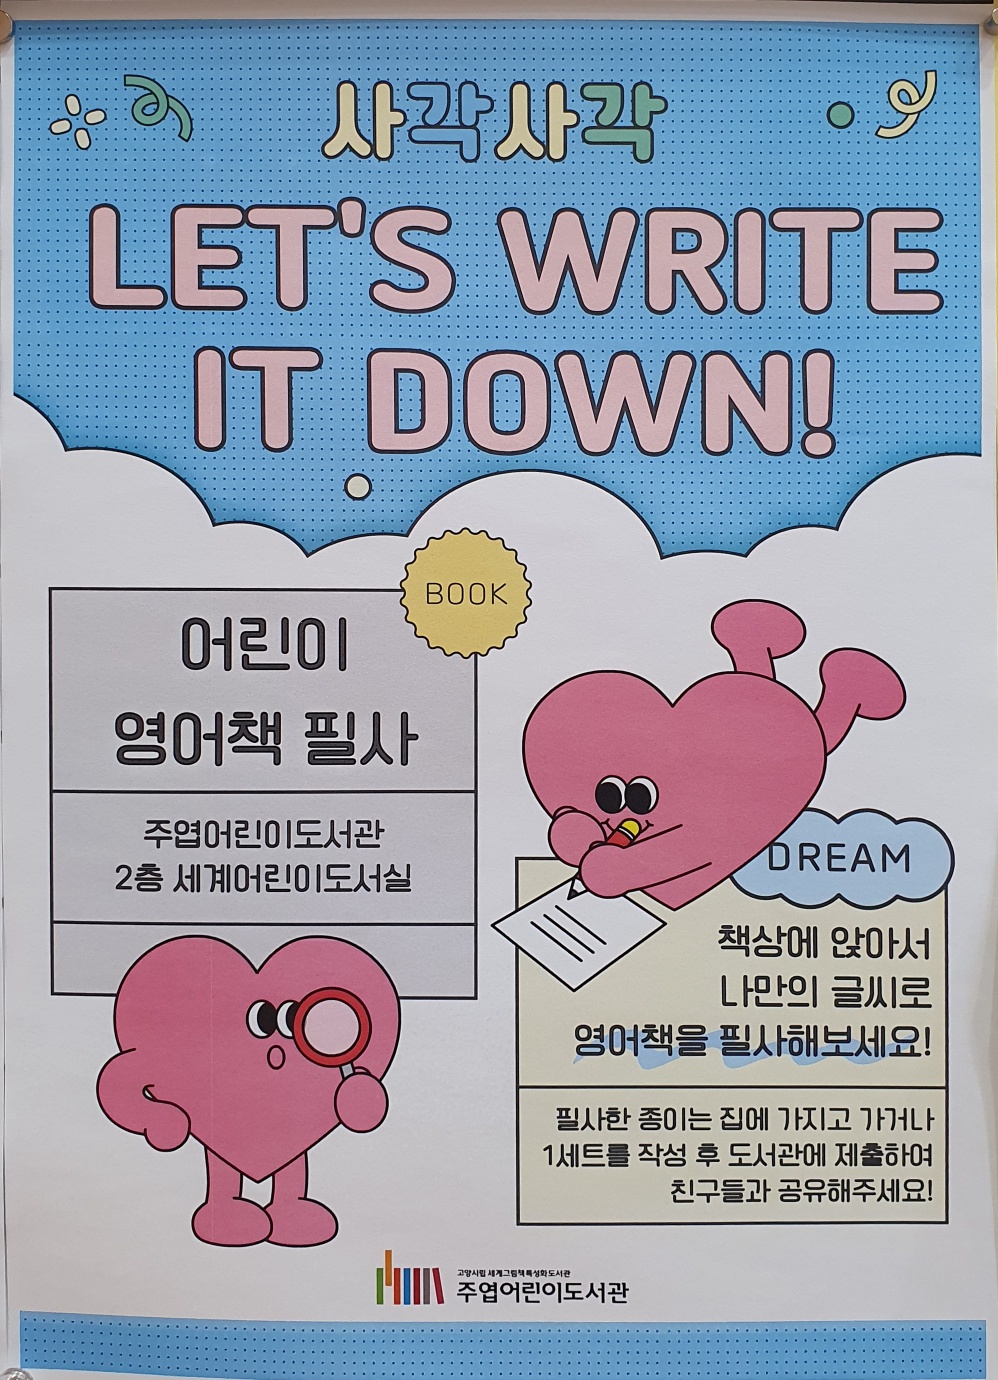 사각사각
LET'S WRITE
IT DOWN!
BOOK
어린이
영어책 필사
주엽어린이도서관
2층 세계어린이도서실
DREAM
책상에 앉아서
나만의 글씨로
영어책을 필사해보세요!
필사한 종이는 집에 가지고 가거나
1세트를 작성 후 도서관에 제출하여
친구들과 공유해주세요!
고양시립 세계그림책특성화도서관
주엽어린이도서관